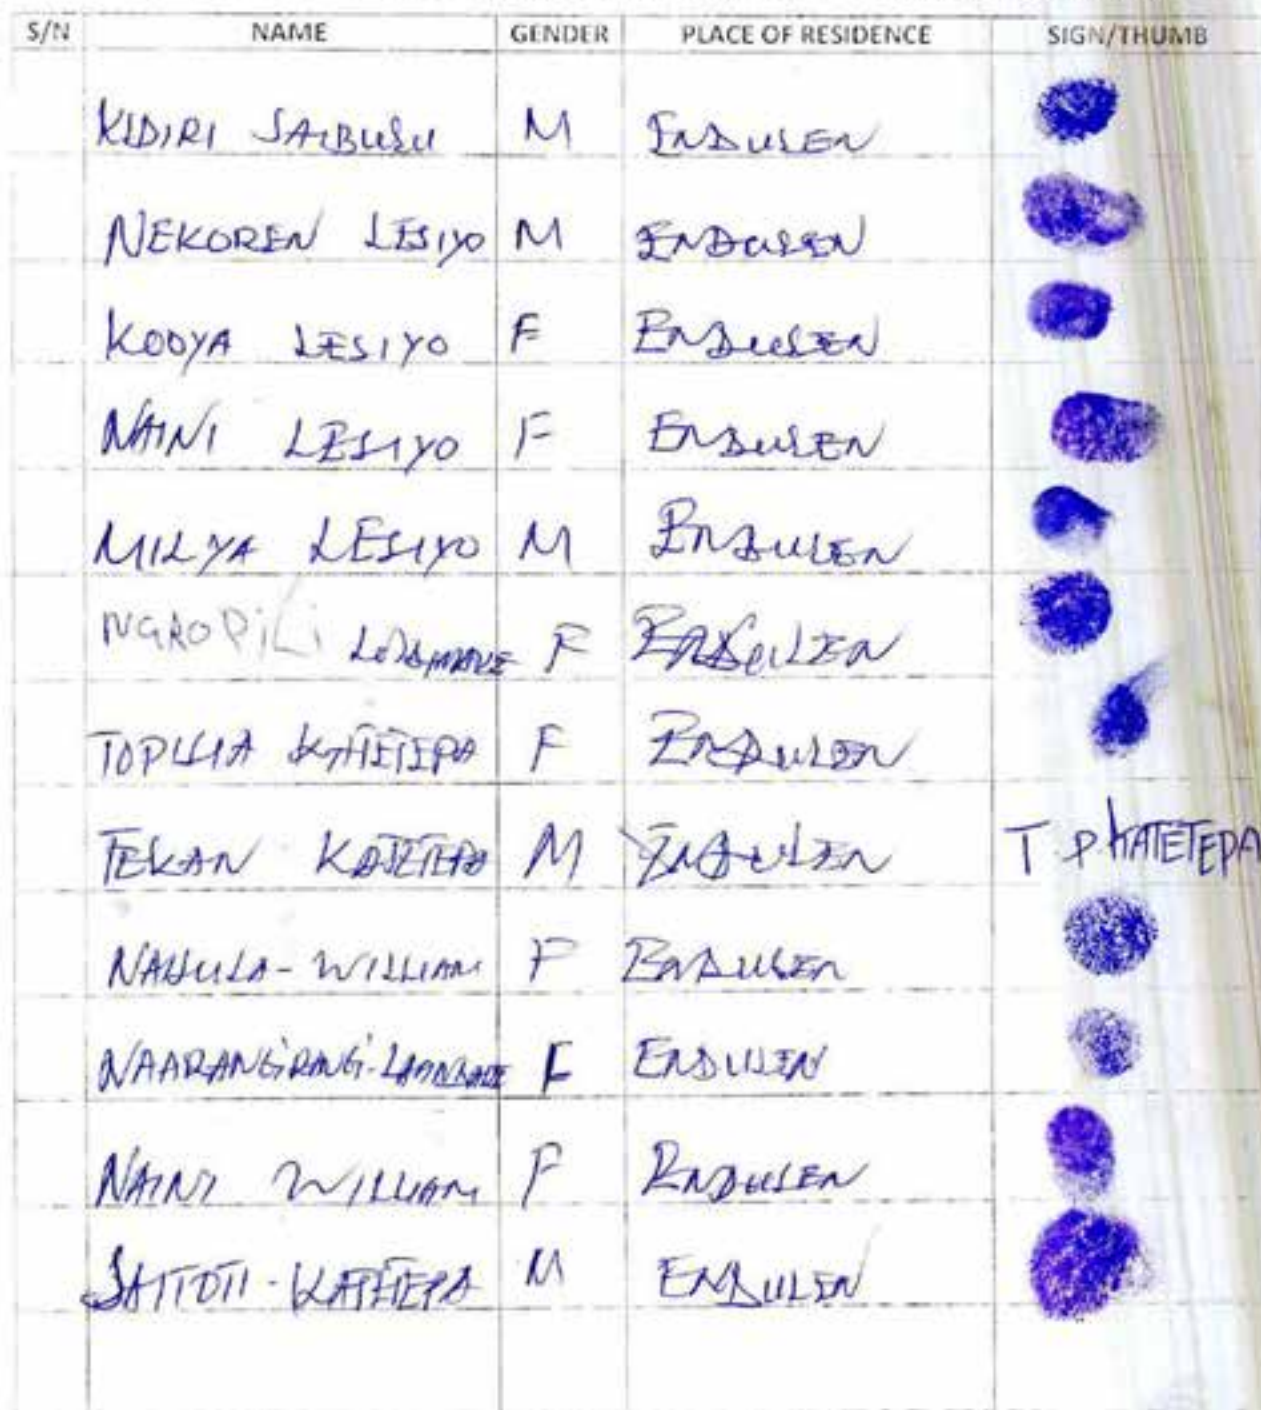 S/N NAME GENDER PLACE OF RESIDENCE SIGN/THUMB
KIDIRI SAIBUSU M ENDULEN
NEKOREN LESIYO M ENDULEN
KOOYA LESIYO F ENDULEN
NAINI LESIYO F ENDULEN
MILYA LESIYO M ENDULEN
NGROPILI F ENDULEN
TOPULIA KATETEPA F ENDULEN
TEKAN KATETEPA M ENDULEN T P KATETEPA
WILLIAM F ENDULEN
F ENDULEN
NAINI WILLIAM F ENDULEN
SAITOTI - KATETEPA M ENDULEN